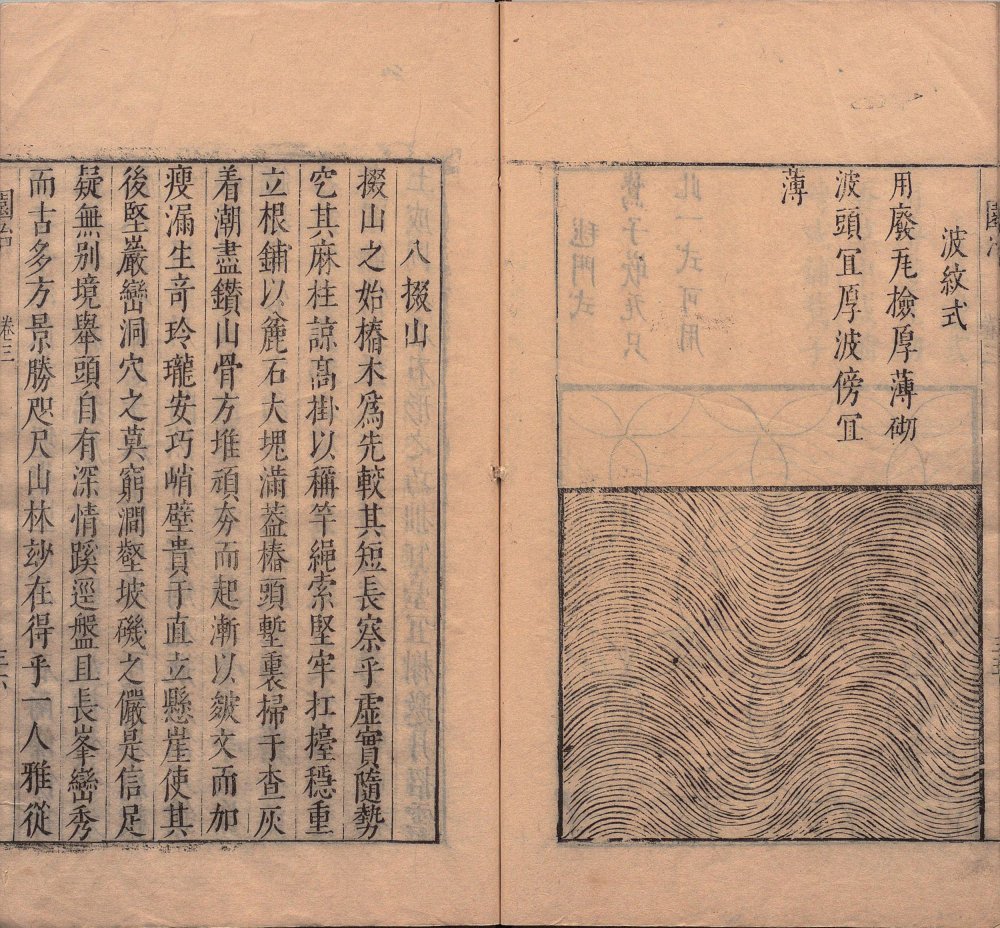 波紋式
用廢瓦檢厚薄砌
波頭宜厚波傍宜
薄
八掇山
掇山之始樁木爲先較其短長察乎虛實隨勢
穵其麻柱諒高掛以稱竿繩索堅牢扛擡穩重
立根鋪以麄石大塊滿葢樁頭塹裏掃于查灰
着潮盡鑽山骨方堆頑夯而起漸以皴文而加
瘦漏生竒玲瓏安巧峭壁貴于直立懸崖使其
後堅巖巒洞穴之莫窮澗壑坡磯之儼是信足
疑無別境舉頭自有深情蹊逕盤且長峯巒秀
而古多方景勝咫尺山林玅在得乎一人雅從
卷三